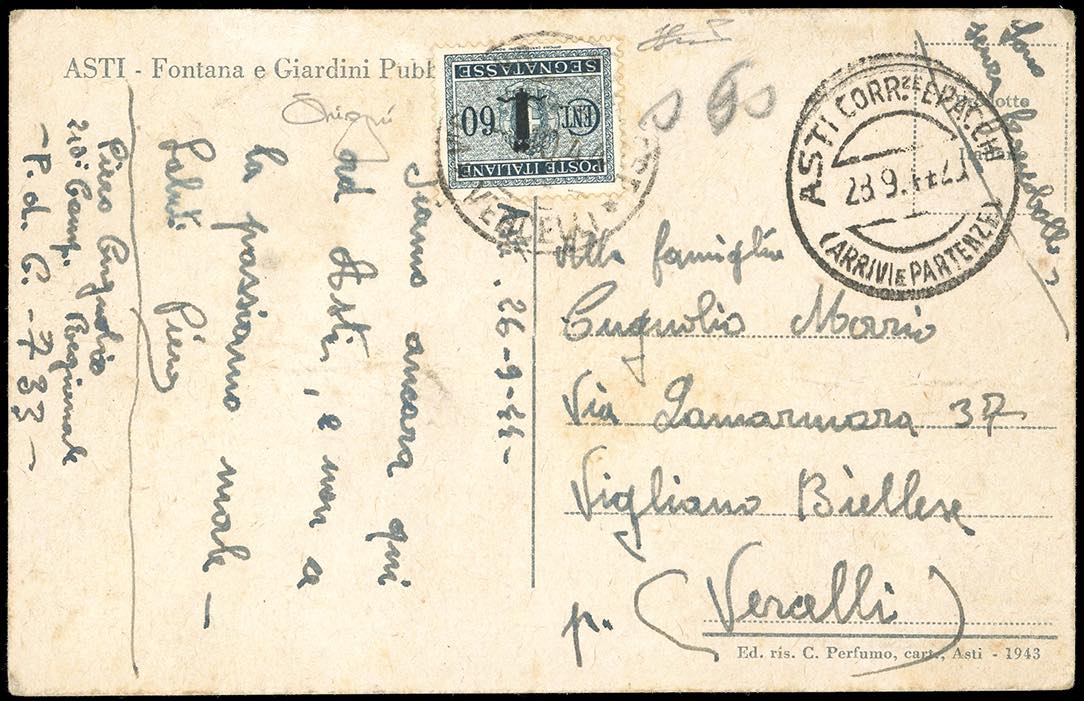 ASTI - Fontana e Giardini Pubb
SEGNATASSE
CENT. 60
POSTE ITALIANE
VERCELLI
ASTI CORR.ZE E PACCHI
28.9.44.23
(ARRIVI E PARTENZE)
26-9-44-
Siamo ancora qui
ad Asti, e non a
la passiamo male -
Saluti
Piero
Piero Cugnolio
210ª Comp. Regionale
- P. d. C. - 733 -
Alla famiglia
Cugnolio Mario
Via Lamarmora 37
Vigliano Biellese
p. (Vercelli)
Ed. ris. C. Perfumo, cart., Asti - 1943